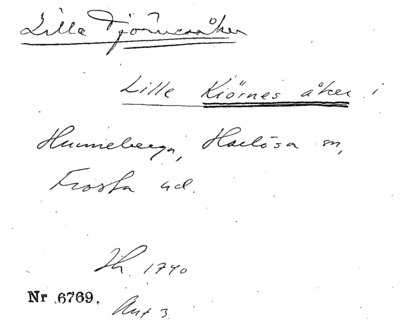 Lilla Tjörnesåker
Lille Kiörnes åker i
Hunneberga, Harlösa sn,
Frosta hd.
Lh. 1740
Nr 6769.
Ant 3